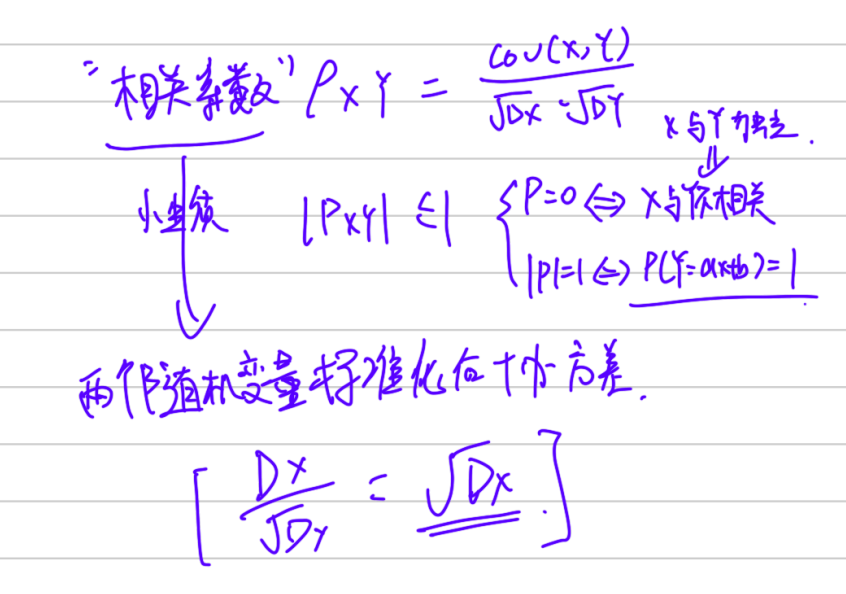 "相关系数" ρXY = cov(X,Y) / √DX · √DY
X与Y独立.
⇓
小性质 |ρXY| ≤ 1 { ρ=0 ⇔ X与Y不相关
|ρ|=1 ⇔ P(Y=aX+b)=1
两个随机变量标准化后协方差.
[ DX / √DY = √DX . ]